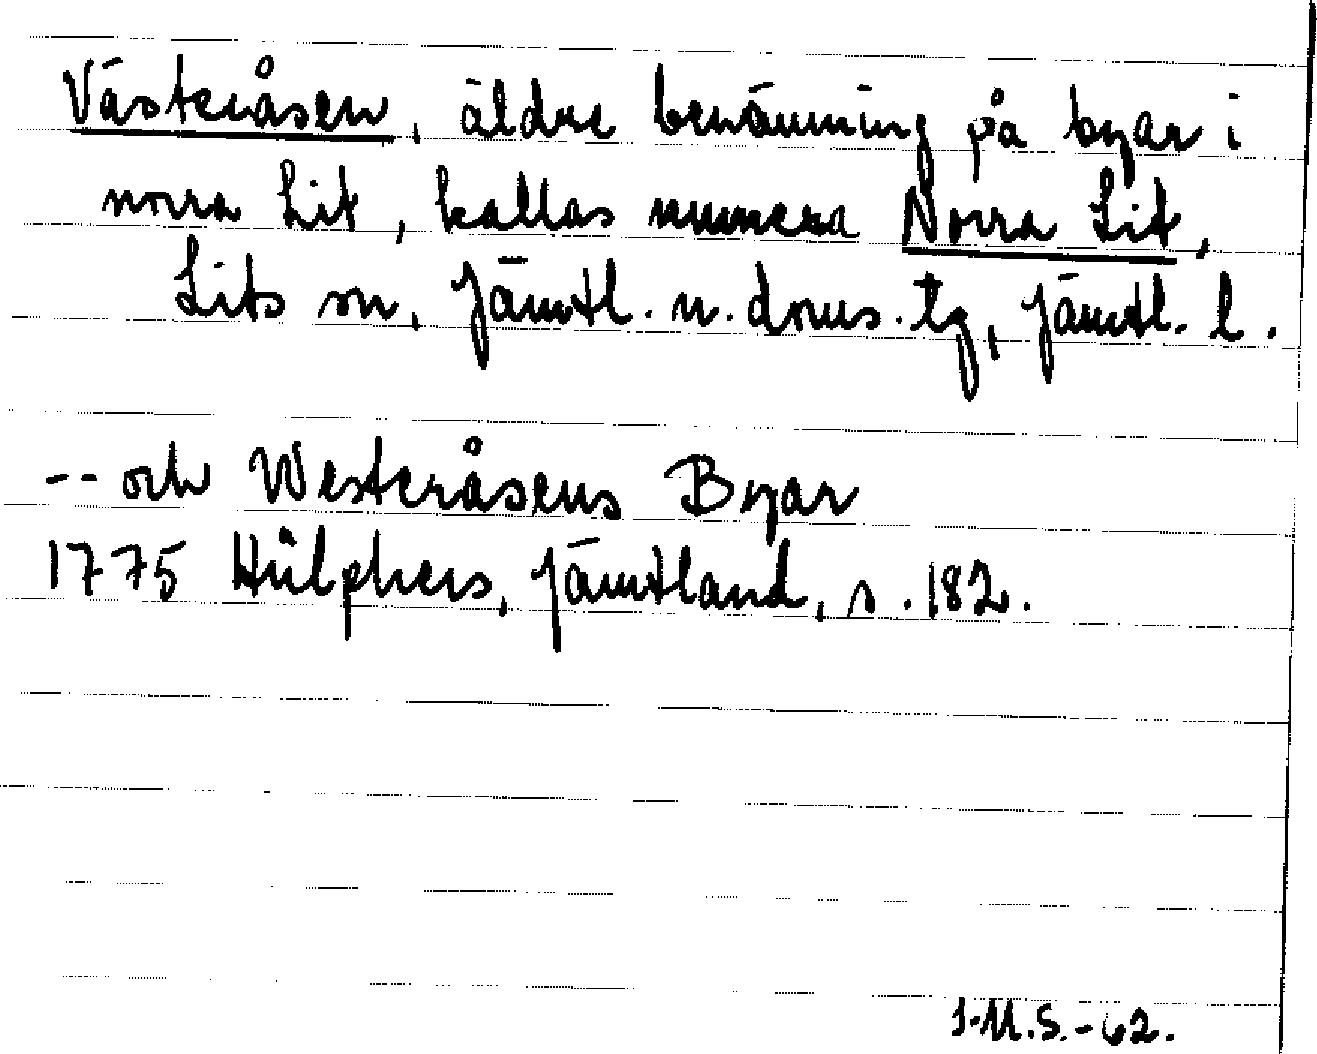 Västeråsen, äldre benämning på byar i
norra Lit, kallas numera Norra Lit,
Lits sn, Jämtl. n. doms. tg, Jämtl. l.
-- och Westeråsens Byar
1775 Hülphers, Jämtland, s. 182.
J.M.S.-62.